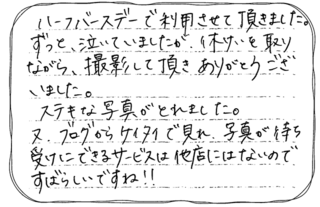 ハーフバースデーで利用させて頂きました。
ずっと、泣いていましたが、休けいを取り
ながら、撮影して頂きありがとうござ
いました。
ステキな写真がとれました。
又、ブログからケイタイで見れ、写真が待ち
受けにできるサービスは他店にはないので
すばらしいですね!!